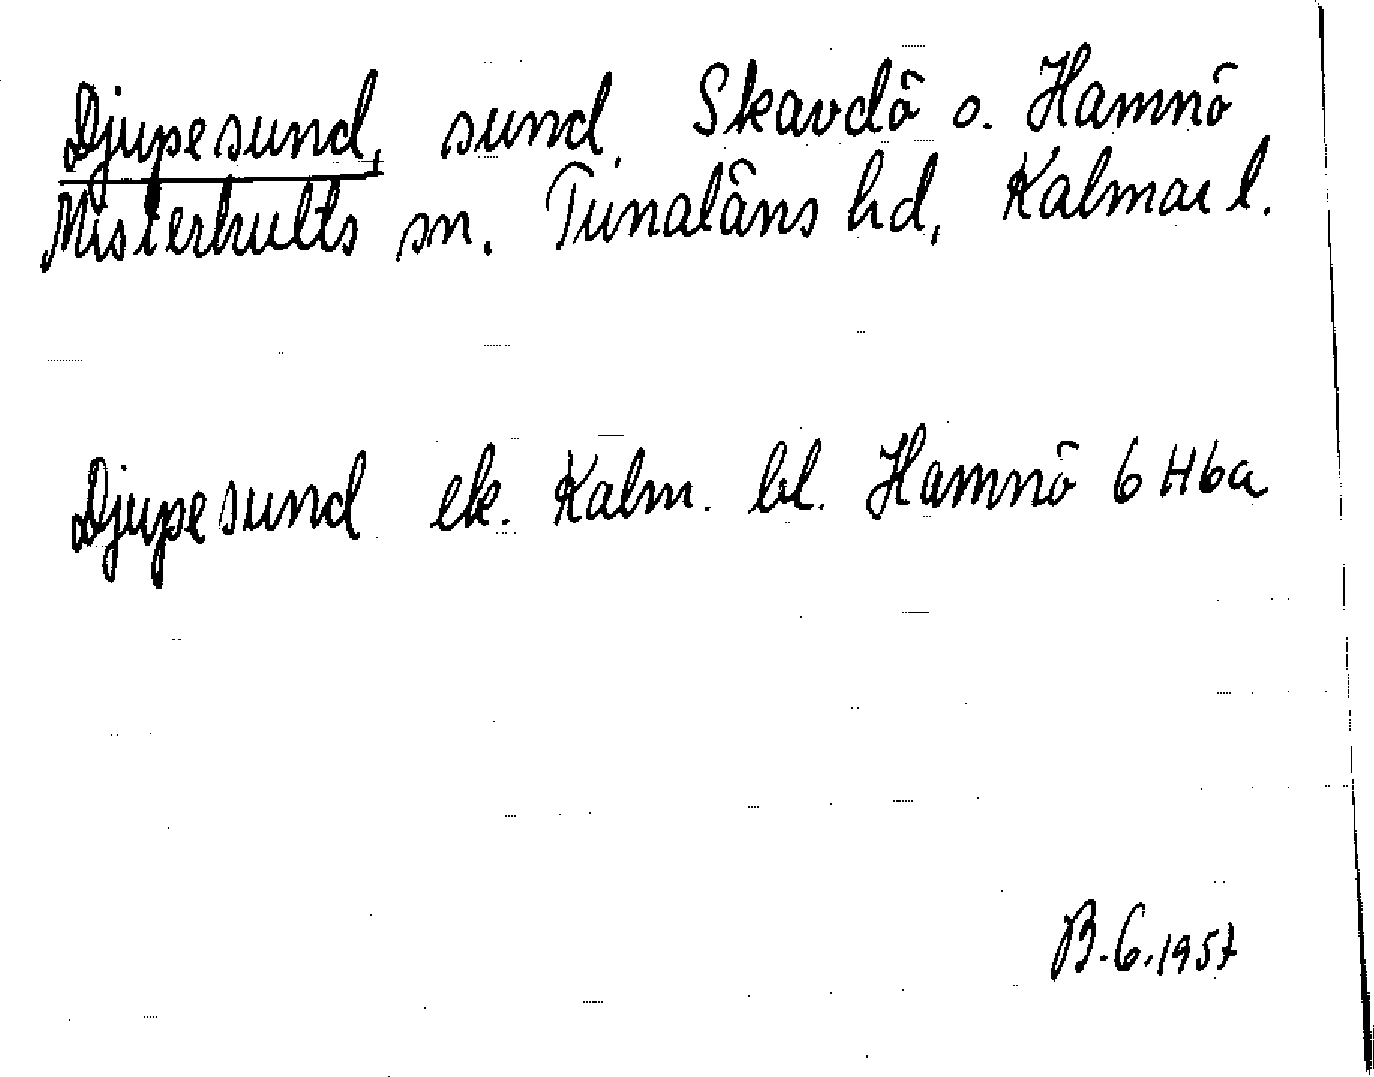 Djupesund, sund. Skavdö o. Hamnö
Misterhults sn. Tunaläns hd, Kalmar l.
Djupesund ek. Kalm. bl. Hamnö 6 H 6a
B. G. 1957